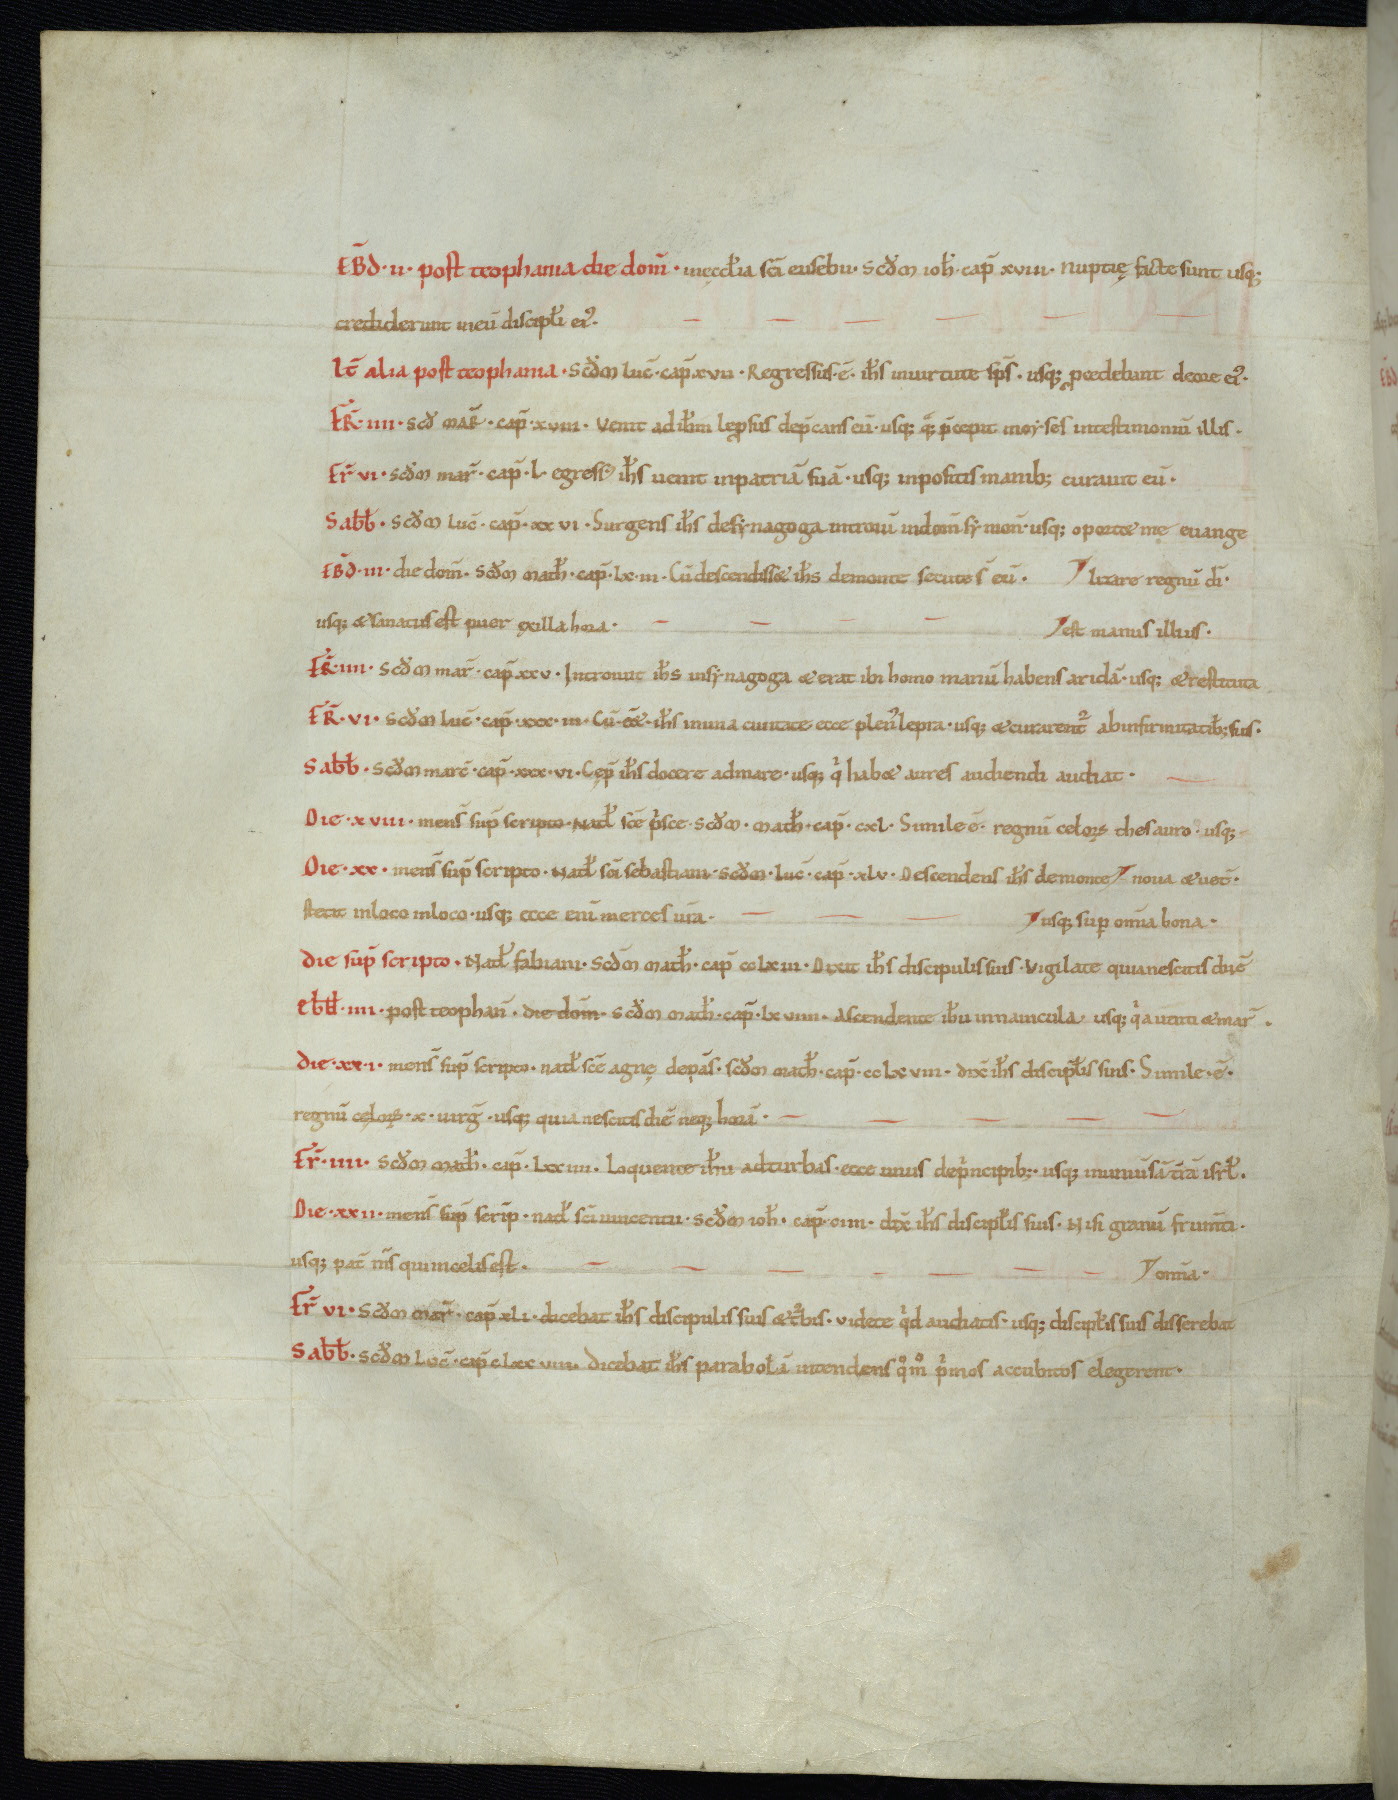 EB̄D · II · post teophania die dom̄ · in eccl̄ia sc̄i eusebii · Scd̄m ioh̄ · cap̄ xviii · Nuptię facte sunt usq;
crediderunt in eū discipl̄i ei᾽.
It̄ alia post teophania · Scd̄m luc̄ · cap̄ · xvii · Regressus · ē · ih̄s in uirtute sp̄s · usq; procedebunt de ore ei᾽.
FR̄ · IIII · Scd̄ MAR̄ · cap̄ · xviii · Venit ad ih̄m leprosus dep̄cans eū · usq; q̄; p̄cepit moyses in testimoniū illis ·
Fr̄ VI · Scd̄m mar̄ · cap̄ · L · egress᾽ ih̄s uenit in patriā suā · usq; inpositis manib; curauit eū ·
Sabb̄ · Scd̄m luc̄ · cap̄ · xx vi · Surgens ih̄s de synagoga introiu̅ in dom̄ symon̄ · usq; oportet me euange
EB̄D · III · die dom̄ · Scd̄m math̄ · cap̄ · Lx · iii · Cū descendisset ih̄s de monte secute s̄ eū · lizare regnū dī ·
usq; et sanatus est puer ex illa hora · est manus illius ·
FR̄ · IIII · Scd̄m mar̄ · cap̄ xxv · Introiuit ih̄s in synagoga et erat ibi homo manū habens aridā · usq; et restituta
FR̄ · VI · Scd̄m luc̄ · cap̄ · xxx · iii · Cū · eēt · ih̄s in una ciuitate ecce plen᾽ lepra · usq; et curarent᾽ ab infirmitatib; suis ·
Sabb̄ · Scd̄m marc̄ · cap̄ · xxx · vi · Cęp̄ ih̄s docere ad mare · usq; q̇ habet aures audiendi audiat ·
Die · xviii · mens̄ sup̄ scripto · Nat̄ sc̄e ṗsce · Scd̄m · math̄ · cap̄ · cxl · Simile ē · regnū celorꝝ thesauro · usq;
Die · xx · mens̄ sup̄ scripto · Nat̄ sc̄i sebastiani · Scd̄m · luc̄ · cap̄ · xlv · Descendens ih̄s de monte noua et uet̄ ·
stetit in loco in loco · usq; ecce enī merces ur̄a · usq; sup̱ om̄ia bona ·
die sup̄ scripto · Nat̄ fabiani · Scd̄m math̄ · cap̄ cclxiii · Dixit ih̄s discipulis suis · Vigilate quia nescitis diē
ebd̄ · IIII · post teophan̄ · die dom̄ · Scd̄m math̄ · cap̄ · lx viiii · Ascendente ih̄u in nauicula · usq; q̇a uenti et mar̄ ·
die · xx · i · mens̄ sup̄ scripto · nat̄ sc̄e agnę de pas̄ · scd̄m math̄ · cap̄ · cclx viii · dix̄ ih̄s discipl̄is suis · Simile · ē ·
regnū cęlorꝝ · x · uirḡ · usq; quia nescitis diē neq; horā ·
Fr̄ · IIII · Scd̄m math̄ · cap̄ · Lxxiiii · Loquente ih̄u ad turbas · ecce unus de ṗncipib; · usq; in uniūsā t̄rā isrl̄ ·
Die · xxii · mens̄ sup̄ scrip̄ · nat̄ sc̄i uincentii · Scd̄m ioh̄ · cap̄ · ciiii · dix̄ ih̄s discipl̄is suis · Nisi granū frum̄ti ·
usq; pat̄ m̄s qui in celis est · om̄ia ·
Fr̄ VI · Scd̄m mar̄ · cap̄ xli · dicebat ih̄s discipulis suis et t᾽bis · uidete q̇d audiatis · usq; discipl̄is suis disserebat
Sabb̄ · Scd̄m Luc̄ · cap̄ clxx viiii · dicebat ih̄s parabolā intendens qͦmͦ ṗmos accubitos elegerent ·